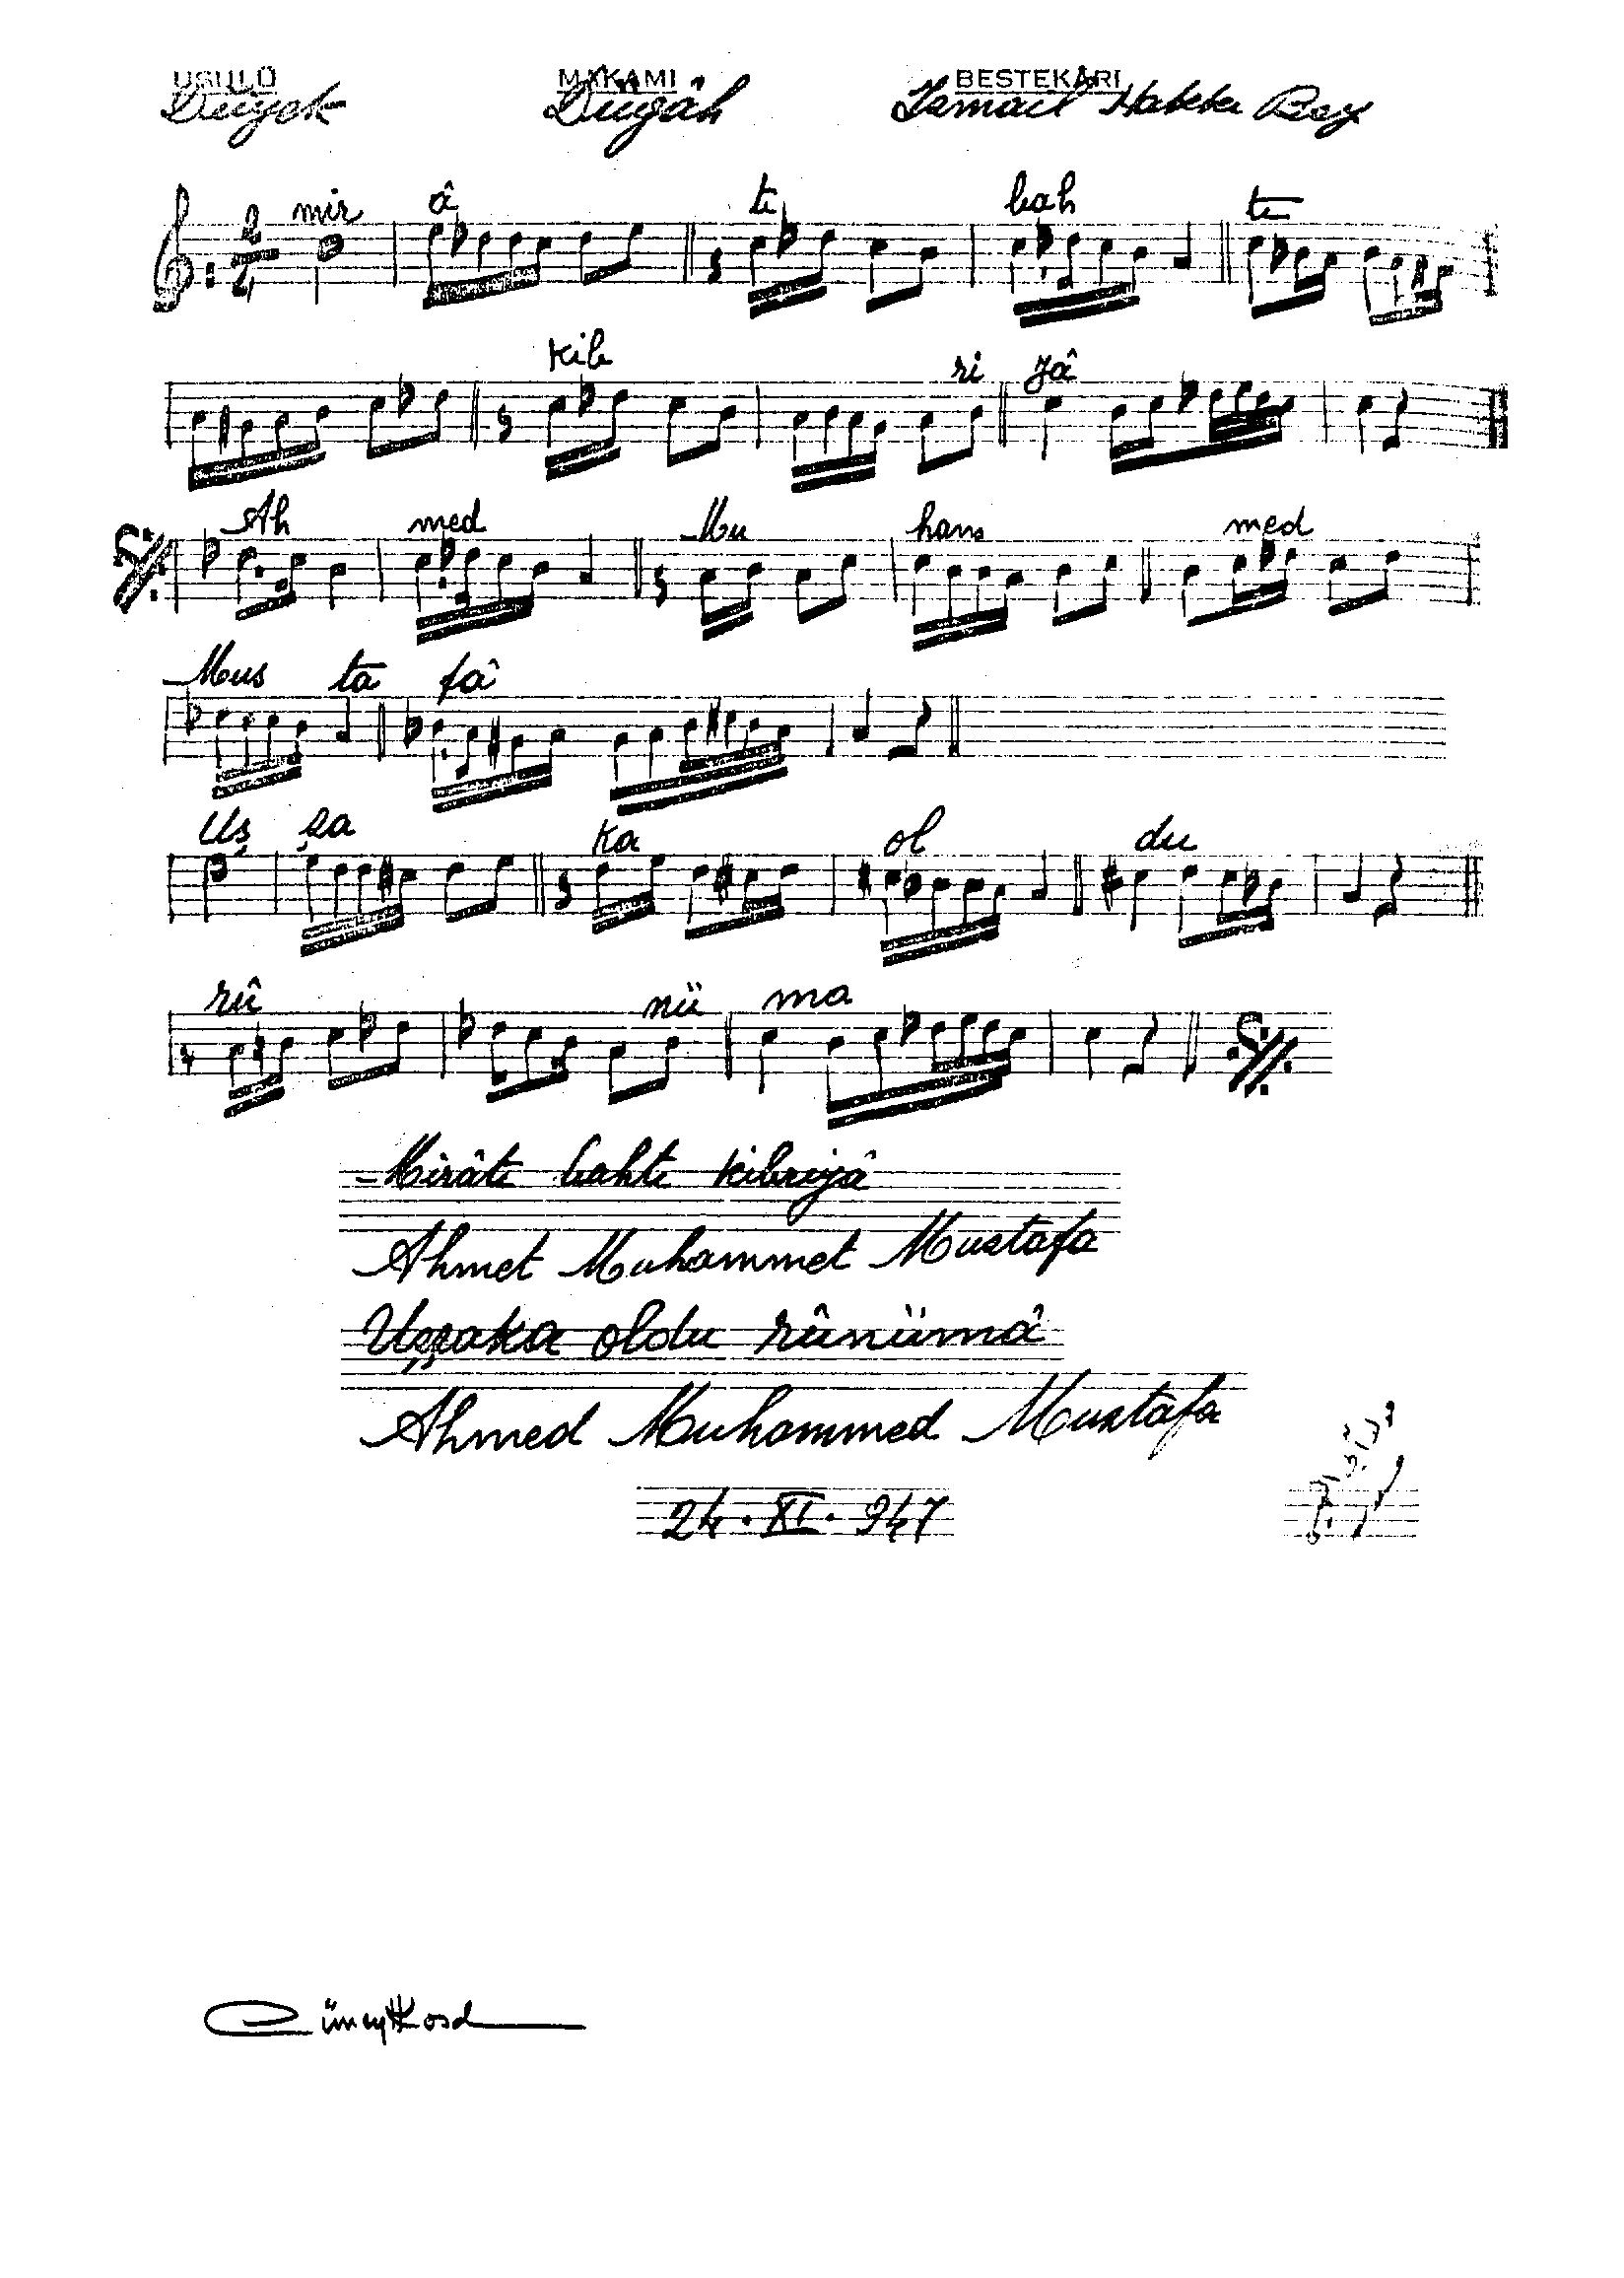 USULÜ MAKAMI BESTEKÂRI
Düyek Dügâh İsmail Hakkı Bey
2/4 mir â ti bah te
kib ri yâ
Ah med Mu ham med
Mus ta fâ
Uş şa ka ol du
rû nü ma
Mirâti bahti kibriyâ
Ahmet Muhammet Mustafa
Uşşaka oldu rûnümâ
Ahmed Muhammed Mustafa
24 . XI . 947
Cüneyt Kosal